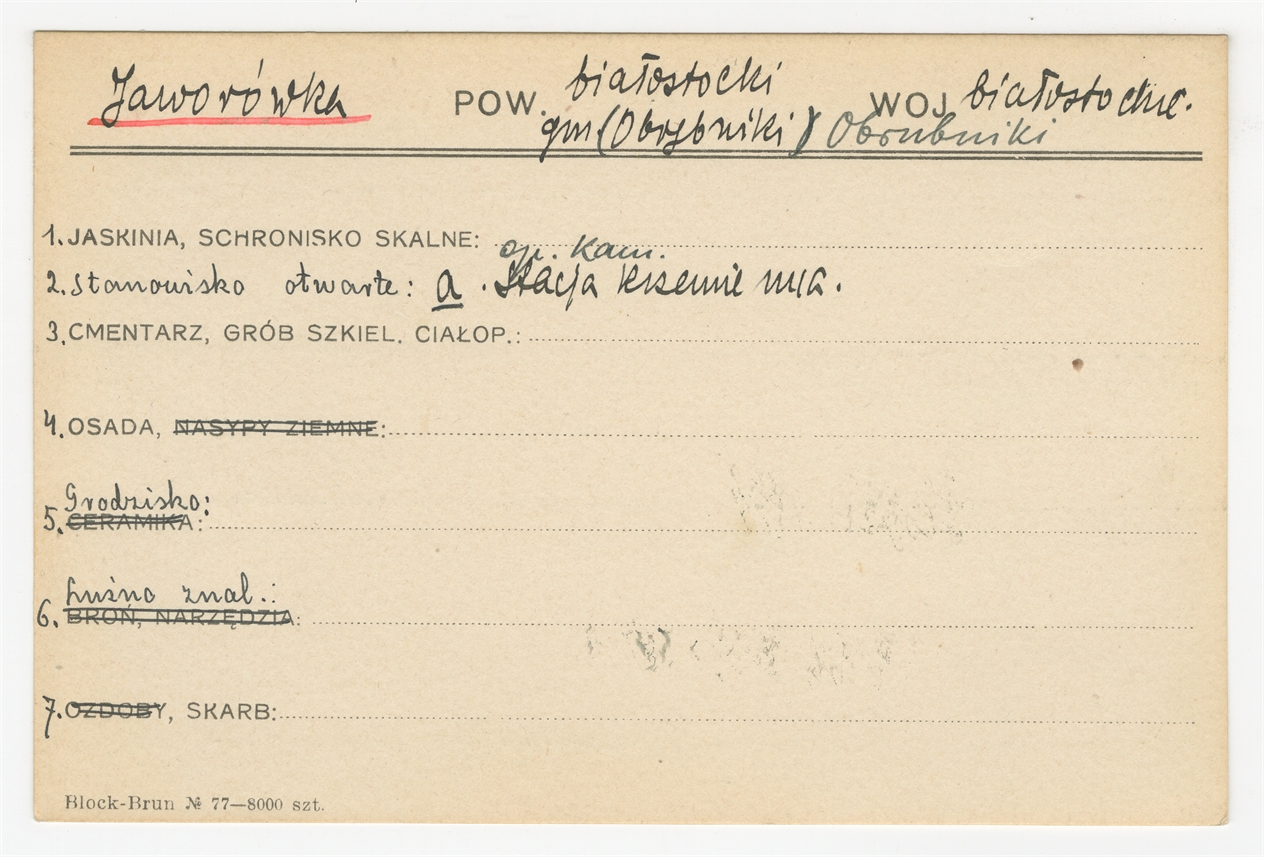 Jaworówka POW. białostocki WOJ białostockie.
gm (Obrębniki) Obrubniki
1. JASKINIA, SCHRONISKO SKALNE:
ep. kam.
2. Stanowisko otwarte: a. Stacja krzemienna.
3. CMENTARZ, GRÓB SZKIEL. CIAŁOP.:
4. OSADA, NASYPY ZIEMNE:
Grodzisko:
5. CERAMIKA:
Luźno znal.:
6. BROŃ, NARZĘDZIA:
7. OZDOBY, SKARB:
Block-Brun № 77—8000 szt.